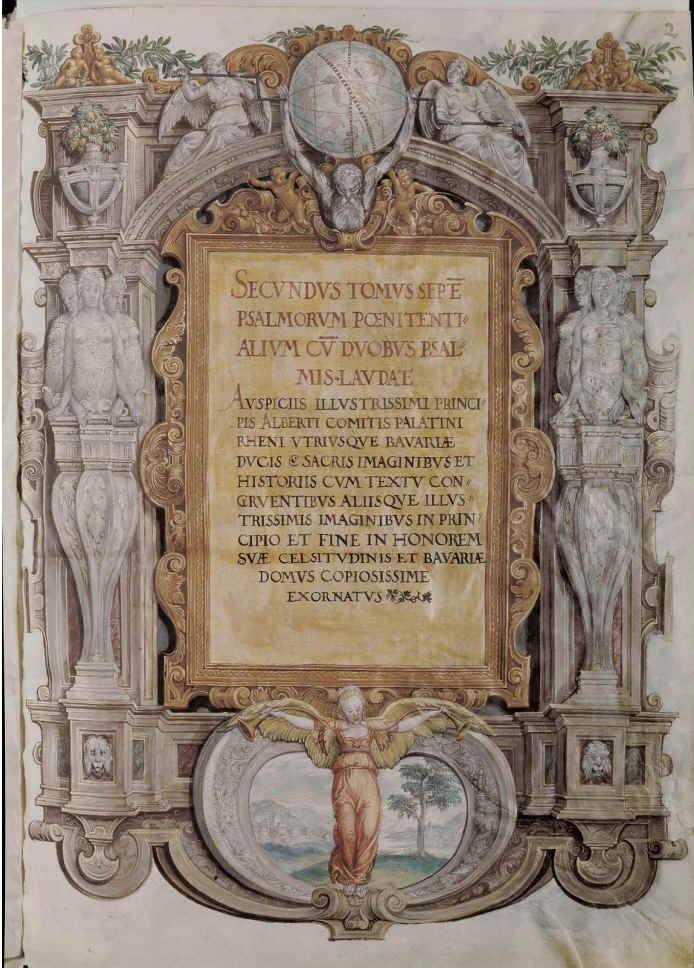 2
SECVNDVS TOMVS SEPTĒ
PSALMORVM PŒNITENTI⸗
ALIVM CV̄ DVOBVS PSAL⸗
MIS·LAVDAE
AVSPICIIS ILLVSTRISSIMI PRINCI⸗
PIS ALBERTI COMITIS PALATINI
RHENI VTRIVSQVE BAVARIÆ
DVCIS & SACRIS IMAGINIBVS ET
HISTORIIS CVM TEXTV CON⸗
GRVENTIBVS ALIISQVE ILLVS⸗
TRISSIMIS IMAGINIBVS IN PRIN⸗
CIPIO ET FINE IN HONOREM
SVÆ CELSITVDINIS ET BAVARIÆ
DOMVS COPIOSISSIME
EXORNATVS